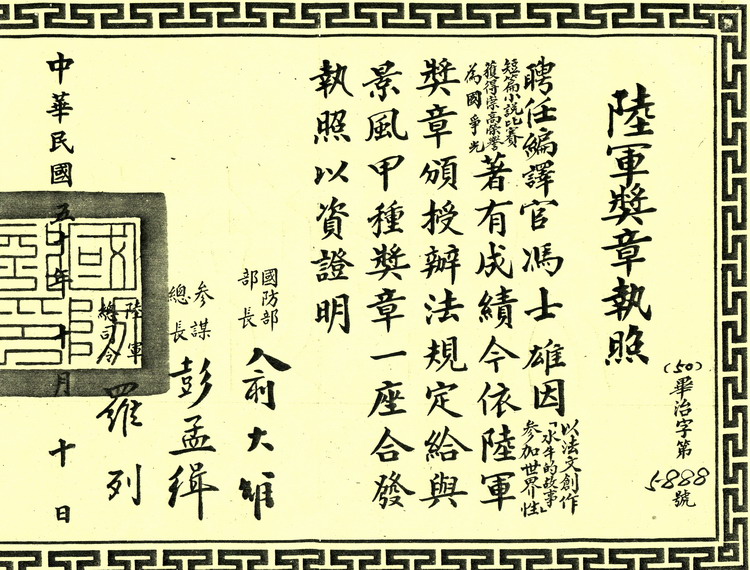 陸軍獎章執照
(50)畢治字第5888號
聘任編譯官馮士雄因
以法文創作
「水牛的故事」
參加世界性
短篇小說比賽
獲得崇高榮譽
為國爭光
著有成績今依陸軍
獎章頒授辦法規定給與
景風甲種獎章一座合發
執照以資證明
國防部
部長
俞大維
參謀
總長
彭孟緝
陸軍
總司令
羅列
中華民國五十年十月十日